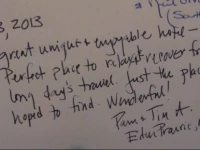 3, 2013
great unique & enjoyable hotel –
Perfect place to relax & recover from
long day's travel. Just the place
hoped to find. Wonderful!
Pam & Tim A.
Eden Prairie,